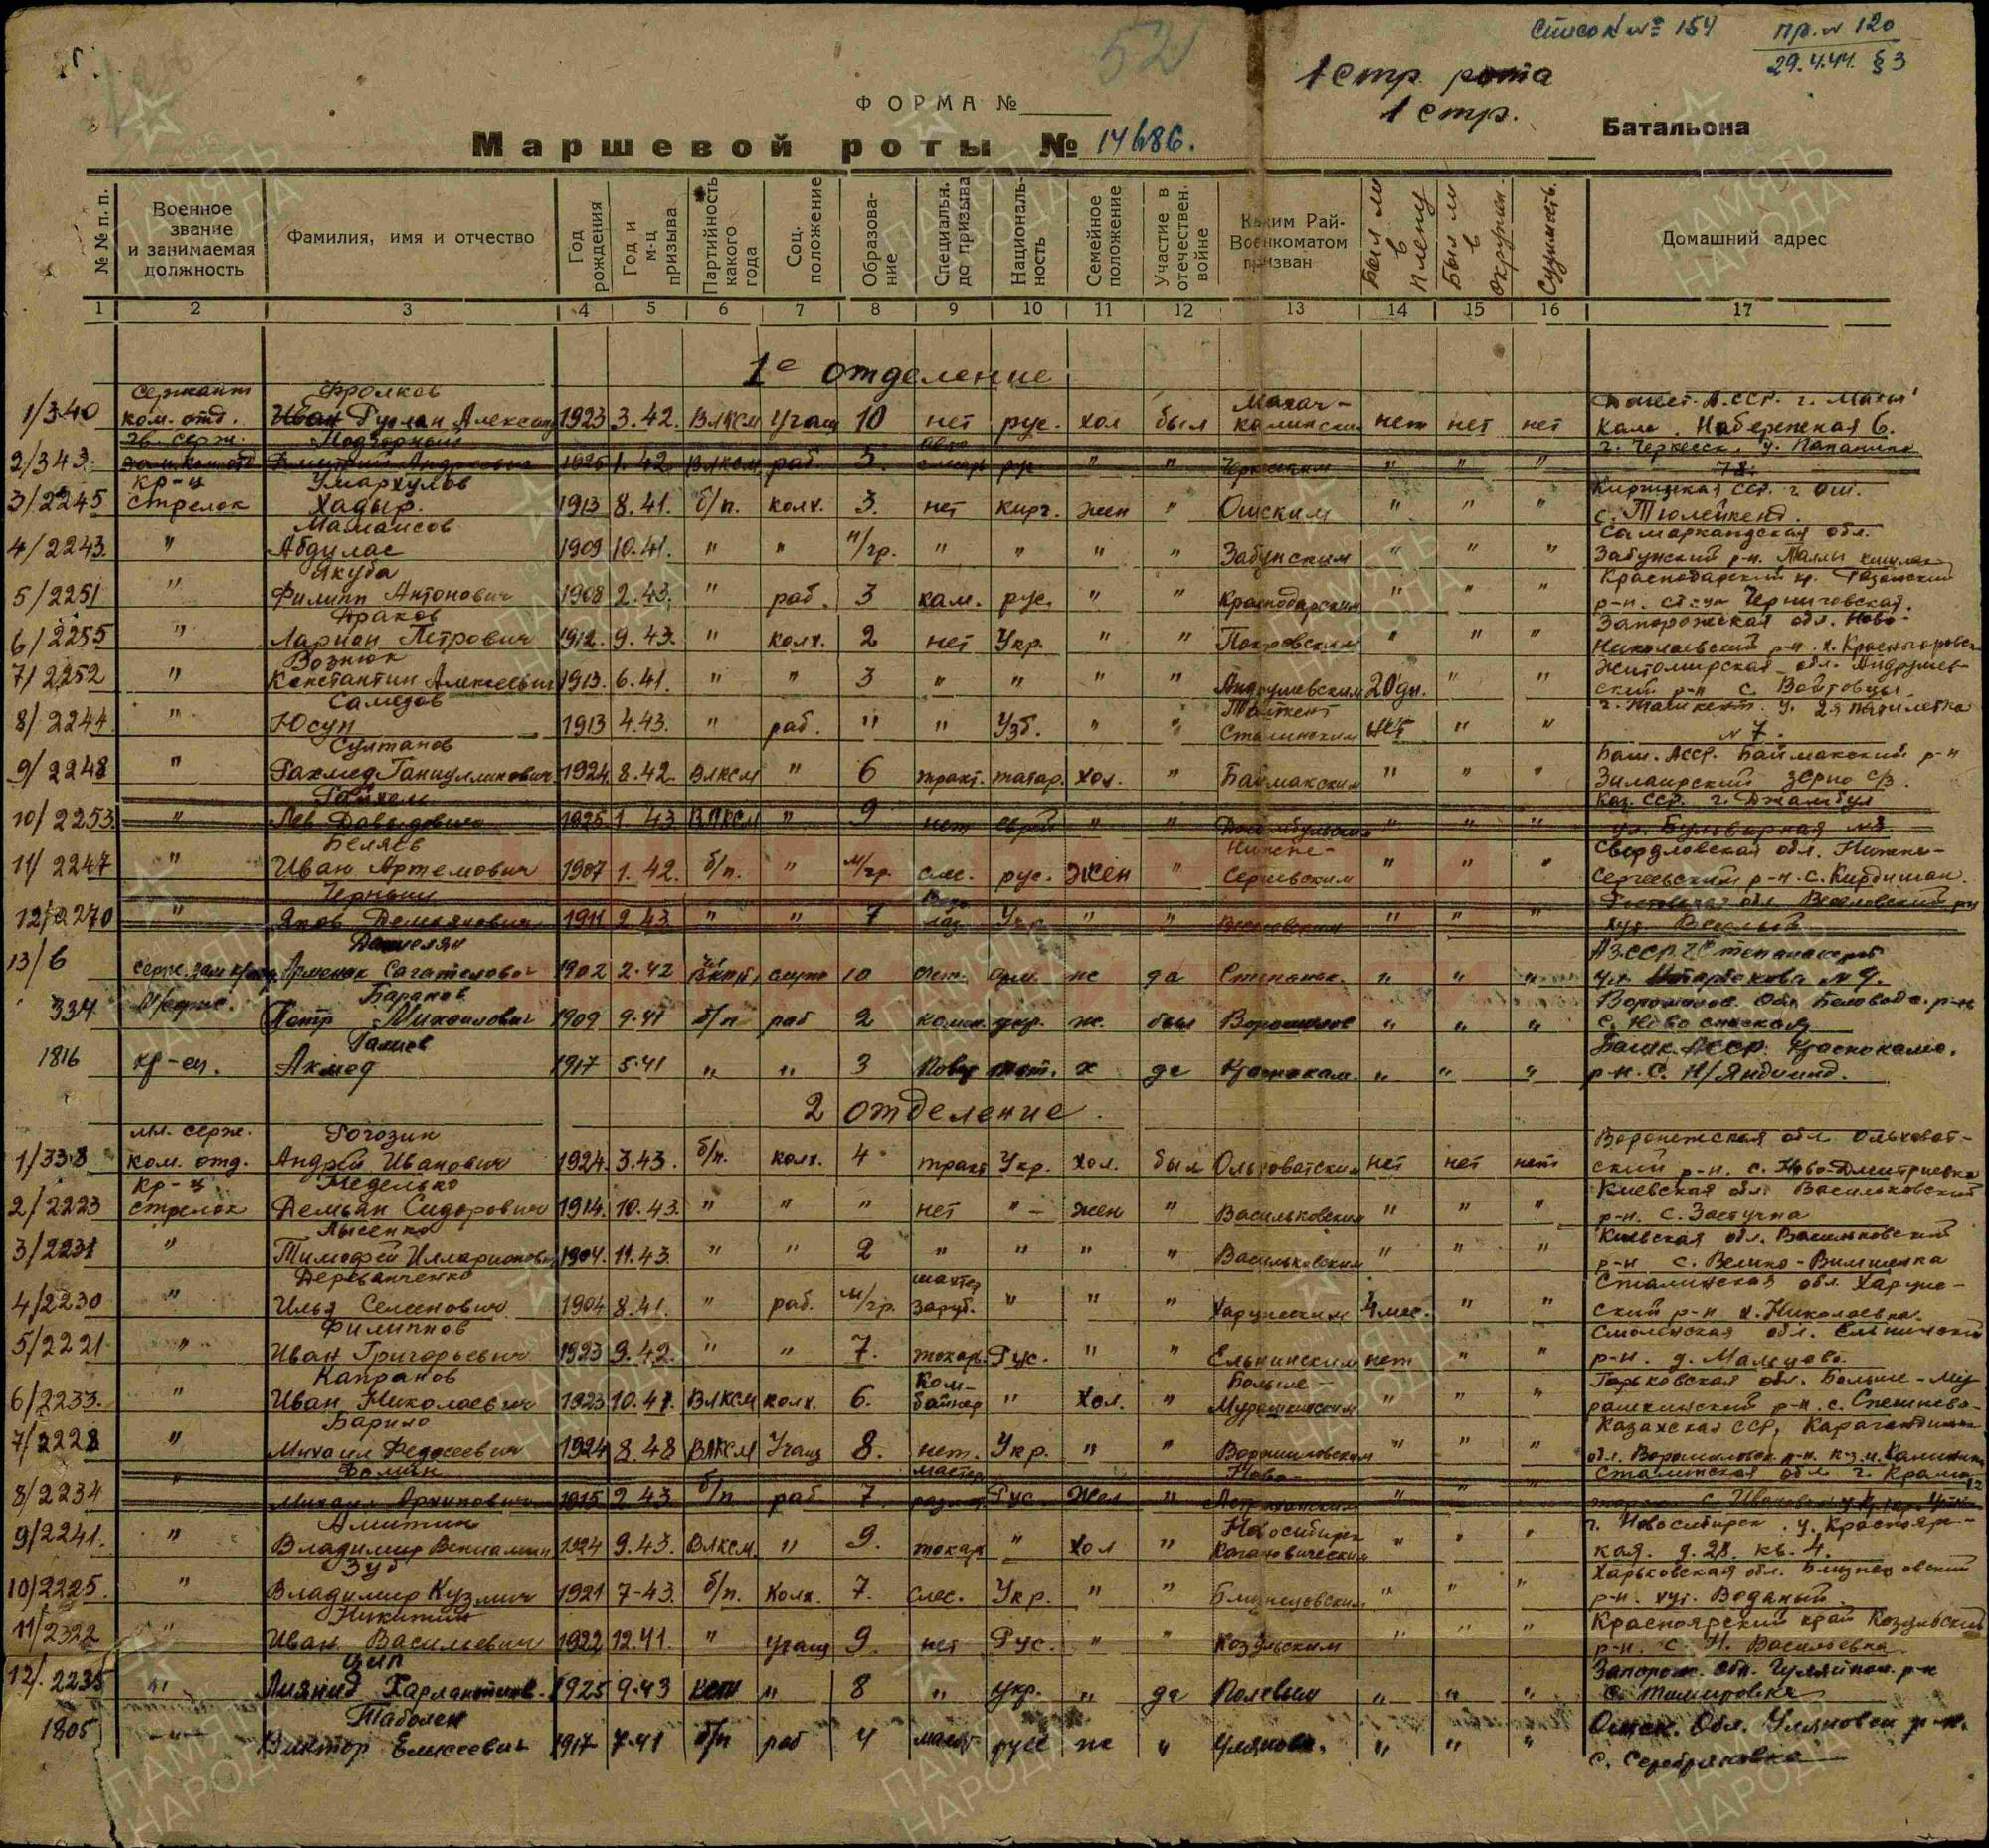 52
Список № 154
пр. № 120
29.4.44. § 3
1 стр. рота
1 стр.
ФОРМА №
Маршевой роты № 14686. Батальона
№ № п. п. Военное звание и занимаемая должность Фамилия, имя и отчество Год рождения Год и м-ц призыва Партийность какого года Соц. положение Образование Специальн. до призыва Национальность Семейное положение Участие в отечествен. войне Каким Рай-Военкоматом призван Был ли в плену Был ли в окружен. Судимость. Домашний адрес
1 2 3 4 5 6 7 8 9 10 11 12 13 14 15 16 17
1е отделение
сержант Фролков Махач- г. Махач
1/340 ком. отд. Иван Руслан 1923 3.42. ВЛКСМ Учащ 10 нет рус. хол был калинским нет нет нет кала. Набережная 6.
гв. серж. г. Черкесск. у.
2/343. 1. 42. ВЛКСМ раб. 5. " " " " " 78.
кр-ц Умаркулов Киргизская ССР. г. Ош.
3/2245 стрелок Хадыр. 1913 8.41. б/п. колх. 3. нет кирг. жен " Ошским " " " с. Тюлейкенд.
Мамаисов Самаркандская обл.
4/2243. " Абдулас 1909 10.41. " " н/гр. " " " " " " "
Якуба Краснодарский кр.
5/2251 " Филипп Антонович 1908 2.43. " раб. 3 кам. рус. " " Краснодарским " " " р-н. ст-ца Черниговская.
Драков Запорожская обл. Ново-
6/2255 " Ларион Петрович 1912. 9.43. " колх. 2 нет Укр. " " Покровским " " " Николаевский р-н. х.
Вознюк Житомирская обл. Андрушев-
7/2252 " Константин Алексеевич 1913. 6.41. " " 3 " " " " Андрушевским 20 дн. " " ский р-н с. Войтовцы.
Самедов Ташкент г. Ташкент. у. 2я пятилетка
8/2244 " Юсуп 1913 4.43. " раб. " " Узб. " " Сталинским нет " " № 7.
Султанов Баш. АССР. Баймакский р-н
9/2248 " 1924. 8.42. ВЛКСМ " 6 тракт. татар. хол. " Баймакским " " " Зилаирский зерно с/з.
Райхель Каз. ССР. г. Джамбул
10/2253. " Лев Давидович 1925. 1. 43. ВЛКСМ " 9 нет еврей " " Джамбульским " " " ул. Бульварная №8.
Беляев Нижне- Свердловская обл. Нижне-
11/2247 " Иван Артемович 1907 1. 42. б/п. " м/гр. слес. рус. жен " Сергиевским " " " Сергеевский р-н. с.
Черныш Ростовская обл. Веселовский р-н
12/2270 " Яков Демьянович 1911 2.43. " " 7 Укр. " " Веселовским " " " хут. Веселый
Даниелян АзССР г Степанакерт
13/6 Арменак 1902 2.42 10 арм. же да Степанак. " " " № 9.
Баранов Ворошилов. обл. Беловодс. р-н
334 Петр Михайлович 1909 9.41 б/п раб 2 укр. ж. был " " "
Галиев Башк. АССР. Краснокамс.
1816 кр-ец. Ахмед 1917 5.41 " " 3 тат. х да Краснокам. " " " р-н. с. Н/
2 отделение.
мл. серж. Рогозин Воронежская обл Ольховат-
1/338 ком. отд. Андрей Иванович 1924. 3.43. б/п. колх. 4 тракт Укр. хол. был Ольховатским нет нет нет ский р-н. с. Ново-Дмитриевка
кр-ц Неделько Киевская обл. Васильковский
2/2223 стрелок Демьян Сидорович 1914. 10.43. " " " нет " жен " Васильковским " " " р-н. с. Застугна
Лысенко Киевская обл. Васильковский
3/2231 " Тимофей Илларионович 1904. 11.43. " " 2 " " " " Васильковским " " " р-н с. Велико-
Дереванченко Сталинская обл. Харцыз-
4/2230 " Илья Семенович 1904 8.41. " раб. м/гр. " " " Харцизским 4 мес. " " ский р-н х. Николаевка.
Филиппов Смоленская обл. Ельнинский
5/2221. " Иван Григорьевич 1923 9.42. " " 7. токарь Рус. " " Ельнинским нет " " р-н. д. Мальцево.
Капранов Ком- Больше- Горьковская обл. Больше-Му
6/2233. " Иван Николаевич 1923 10.41. ВЛКСМ колх. 6. байнер " хол. " Мурашкинским " " " рашкинский р-н. с.
Барило Казахская ССР, Карагандинск
7/2228 " Михаил Федосеевич 1924 8.43 ВЛКСМ Учащ 8. нет. Укр. " " Ворошиловским " " "
Фомин мастер Ново- Сталинская обл г. Крама
8/2234 " Михаил Архипович 1915 2.43. б/п раб 7. Рус жен " " " "
Алитин Новосибирск г. Новосибирск. у. Краснояр-
9/2241. " Владимир Вениамин 1924 9.43. ВЛКСМ. " 9. токарь " хол " Кагановическим " " " кая. д. 28. кв. 4.
Зуб Харьковская обл. Близнецовский
10/2225. " Владимир Кузьмич 1921 7-43. б/п. Колх. 7. слес. Укр. " " Близнецовским " " " р-н. хут. Водяный.
Никитин Красноярский край Козульский
11/2322 " Иван Васильевич 1922 12.41. " учащ 9. нет Рус. " " Козульским " " " р-н. с. Н. Васильевка
Цып Запорож. обл. Гуляйпол. р-н
12/.2235 " 1925 9.43 нет " 8 " укр. " да " " " с. Темировка
Таболен Омск. Обл. Ульяновск р-н.
1805 Виктор Елисеевич 1917 7.41 б/п раб 4 русс же " Ульянов. " " " с. Серебряковка